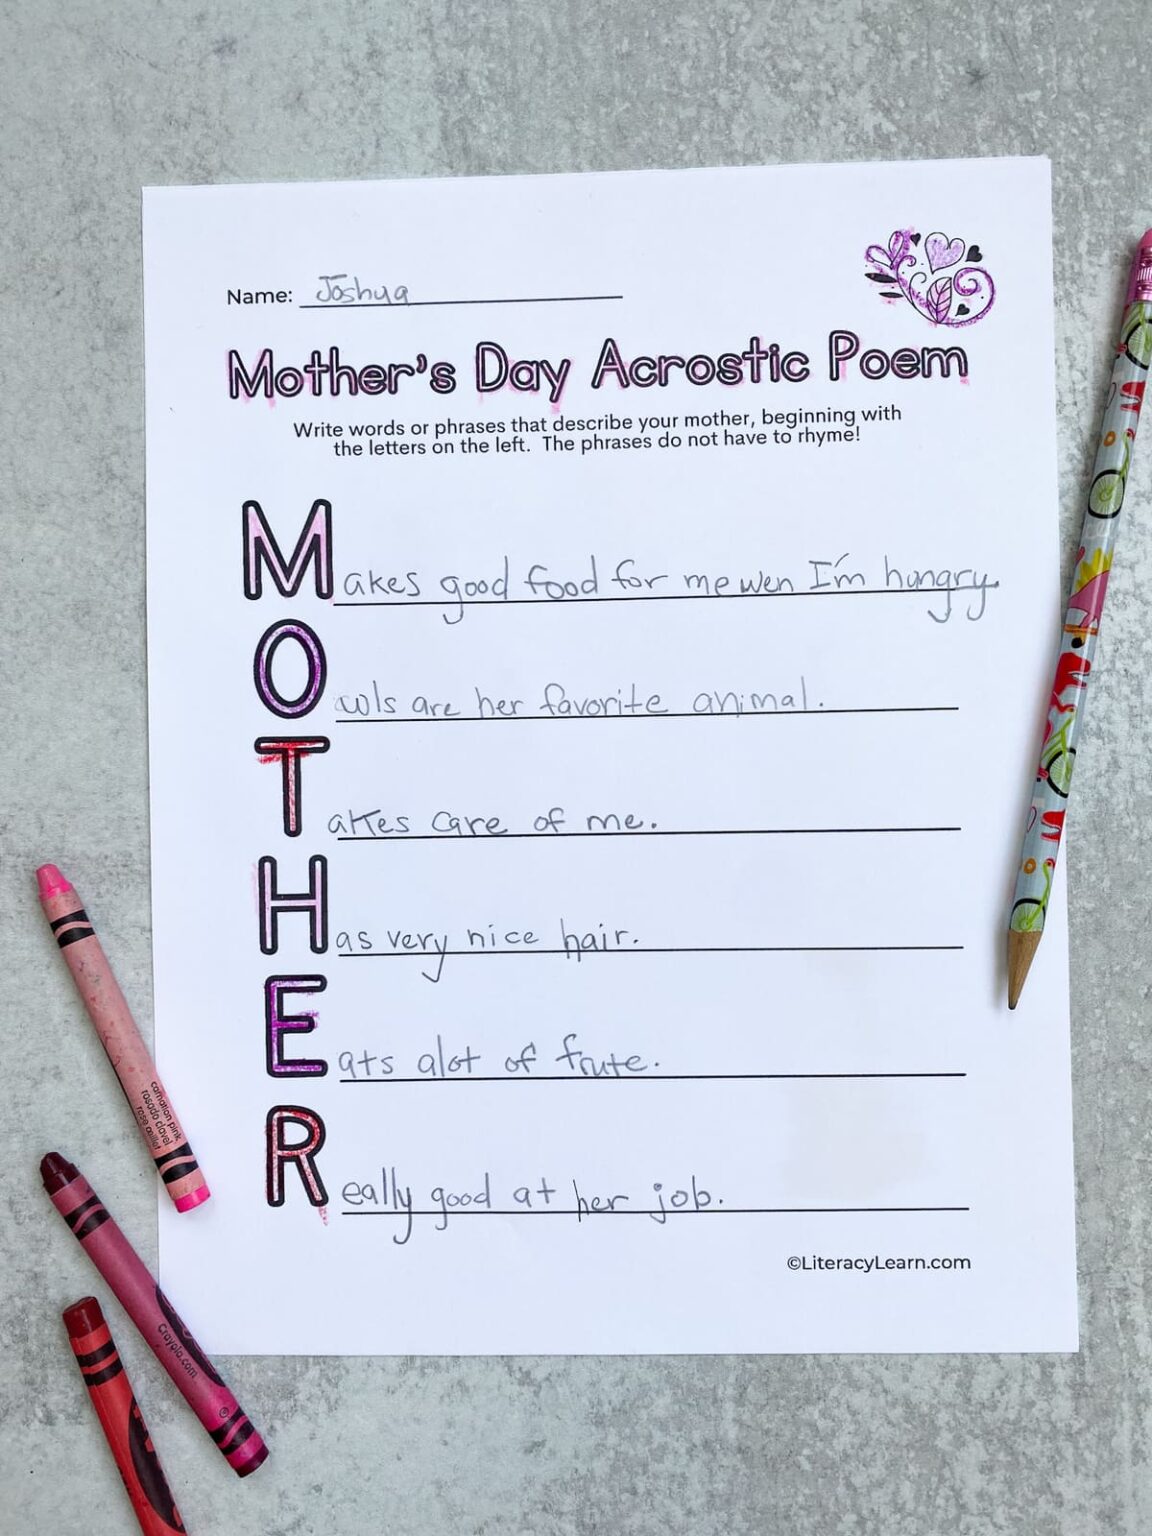 Name: Joshua
Mother's Day Acrostic Poem
Write words or phrases that describe your mother, beginning with
the letters on the left. The phrases do not have to rhyme!
Makes good food for me wen I'm hungry
Owls are her favorite animal.
Takes care of me.
Has very nice hair.
Eats alot of frute.
Really good at her job.
©LiteracyLearn.com
carnation pink
rosado clavel
rose œillet
Crayola.com